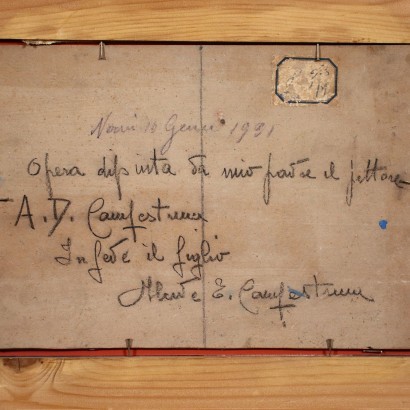 10 Genn 1931
Opera dipinta da mio padre il pittore
A. D. Campestrini
In fede il figlio
E. Campestrini